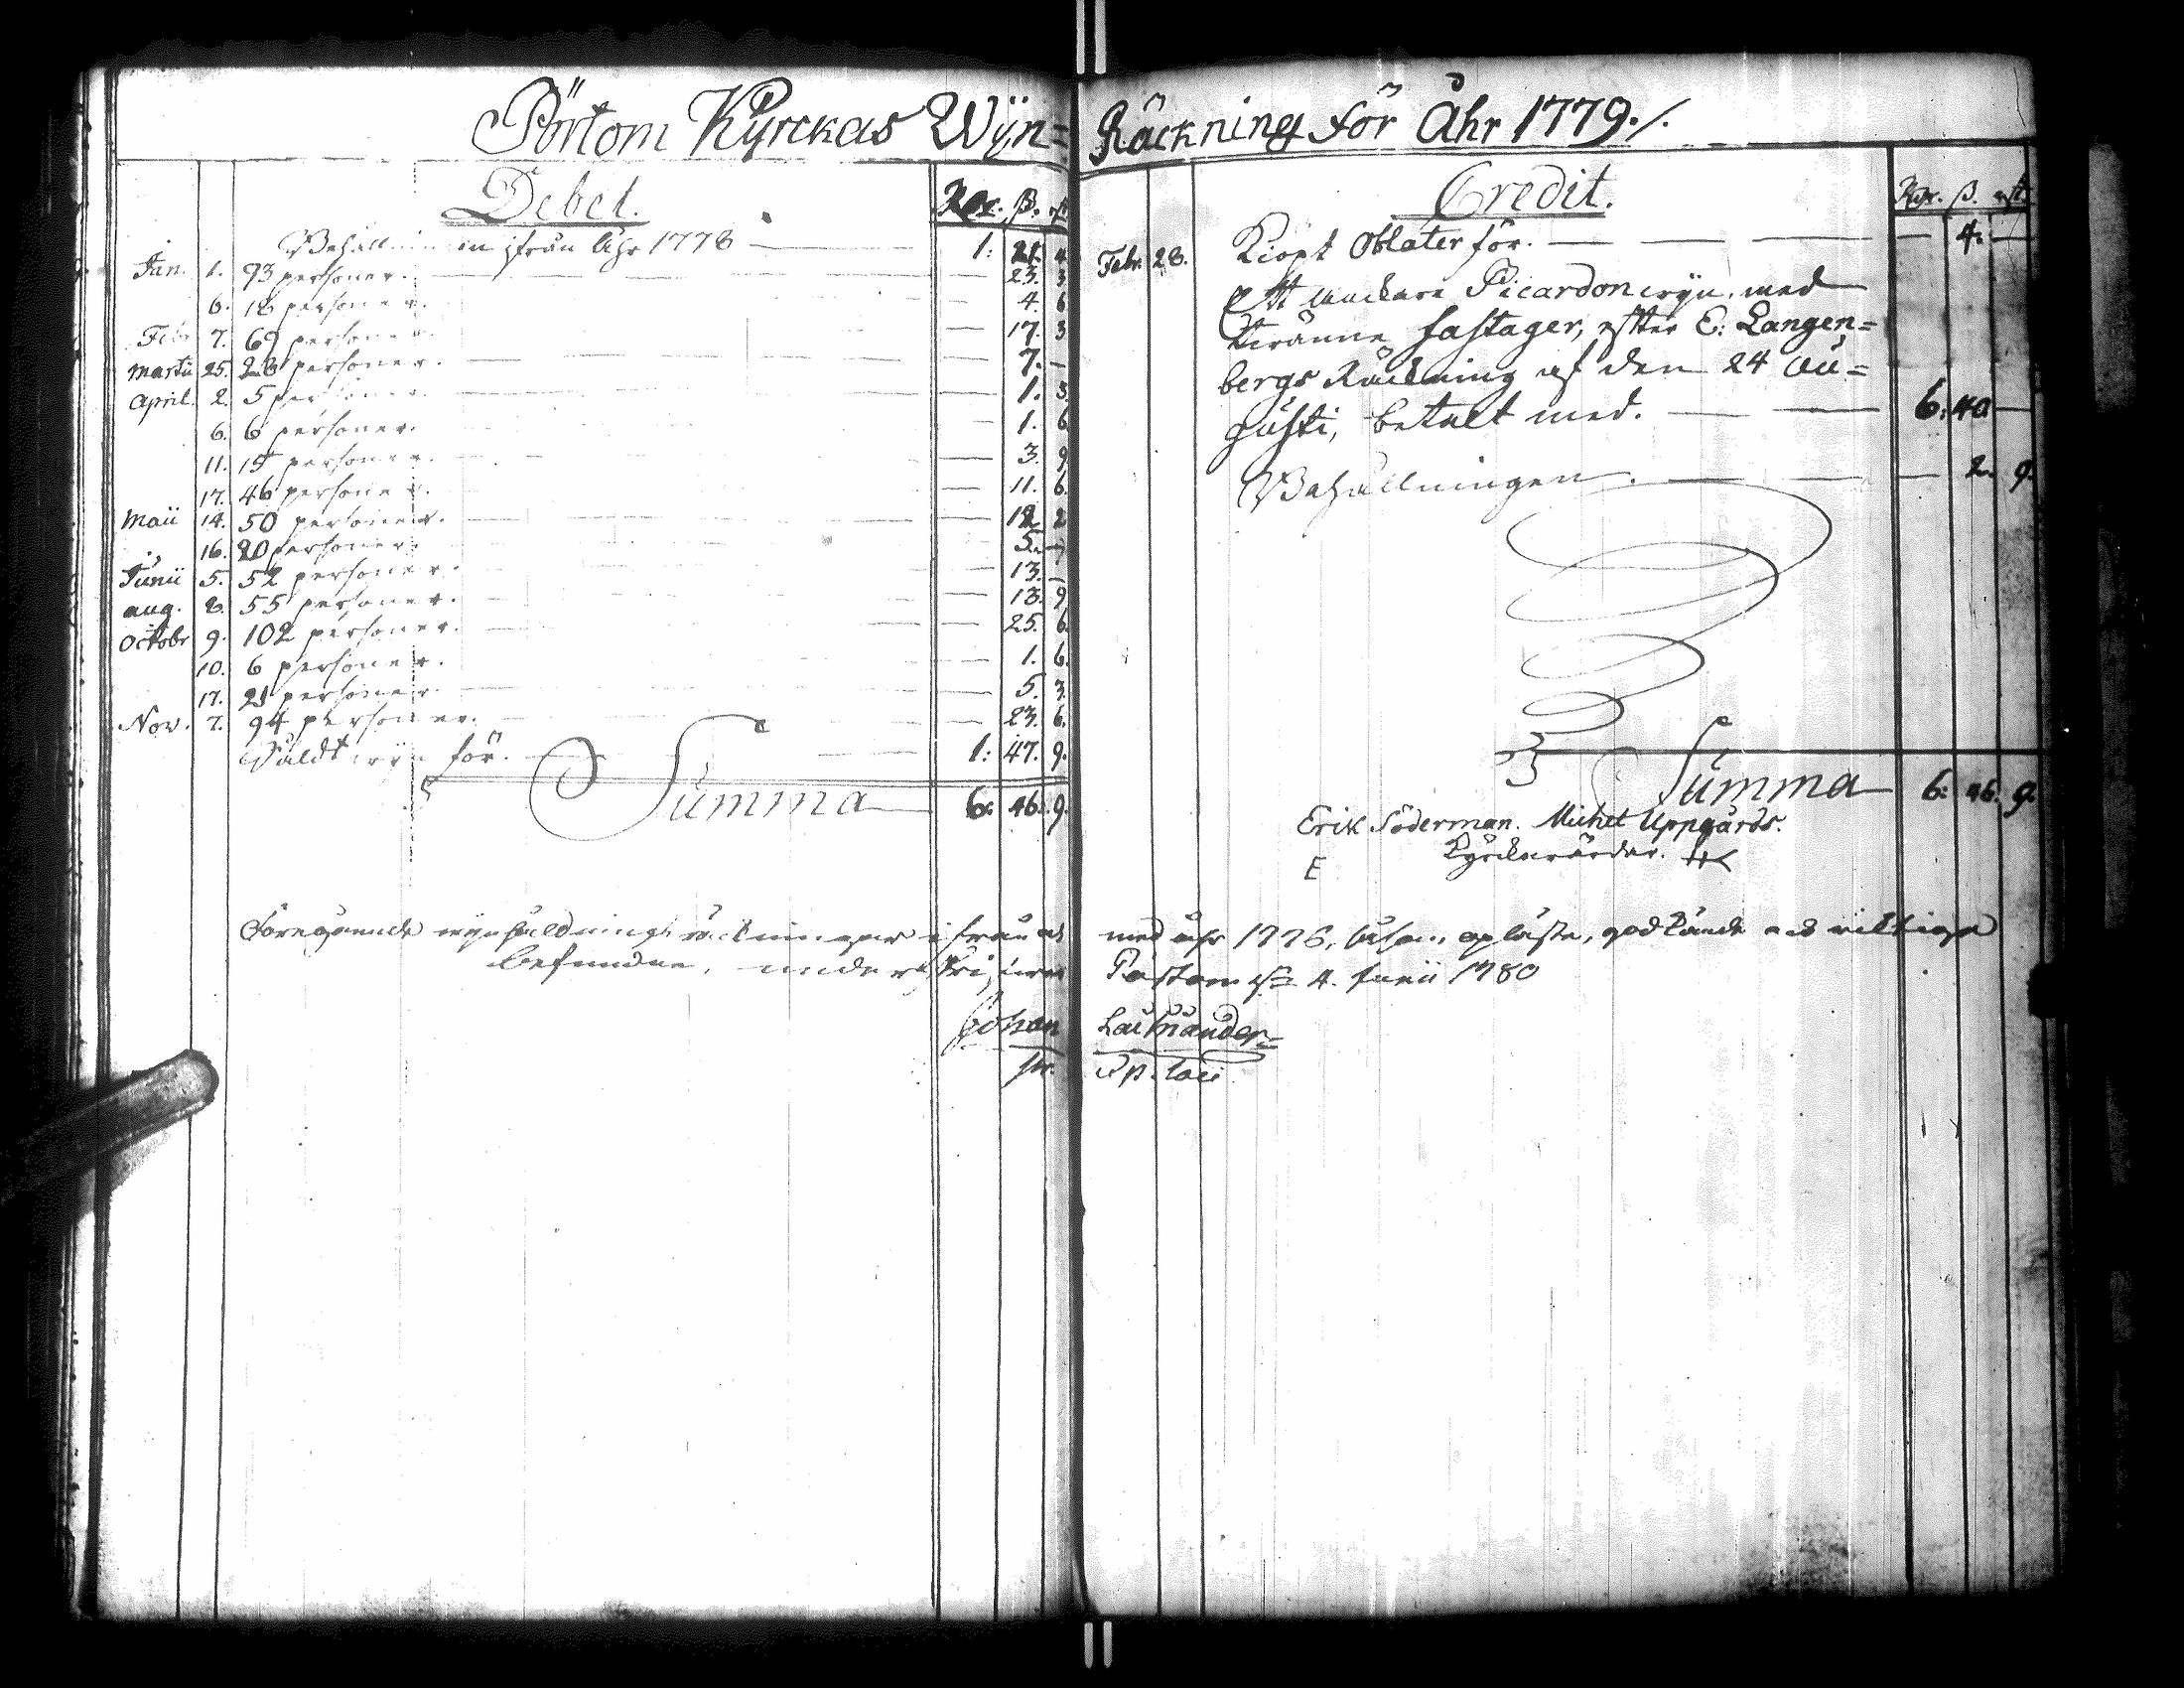 Pörtom Kyrckas Wijn= Räckning för Åhr 1779./.
Debet. Rdr. ß. rst.
Behållningen ifrån Åhr 1778 — 1: 21. 4.
Jan. 1. 93 personer. — 23. 3
6. 18 personer. — 4. 6
Febr. 7. 69 personer. — 17. 3.
Martii 25. 28 personer. — 7. —
April. 2. 5 personer. — 1. 3.
6. 6 personer. — 1. 6
11. 15 personer. — 3. 9.
17. 46 personer. — 11. 6.
Maii 14. 50 personer. — 12 2
16. 20 personer. — 5. —
Junii 5. 52 personer. — 13. —
aug. 8. 55 personer. — 13. 9
Octobr 9. 102 personer. — 25. 6.
10. 6 personer. — 1. 6.
17. 21 personer. — 5. 3.
Nov. 7. 94 personer. — 23. 6.
Såldt wyn för. — 1: 47. 9.
Summa 6: 46. 9.
Credit. Rdr. ß. rst.
Febr. 28. Kiöpt Oblater för. — 4. —
Ett anckare Picardon wyn, med
tvänne fastager, efter E: Langen=
bergs Räckning af den 24 Au=
gusti, betalt med. — 6: 40 —
Behållningen. — 2. 9.
Summa 6: 46. 9.
Erik Söderman. Michel Uppgårds.
E Kyrckovärdar.
Föregående wynsåldnings räckningar ifrån och med åhr 1776, äro, oplästa, godkände och richtiga
befundne, under Pörtom d. 4. Junii 1780
Johan Laihiander
p. loci